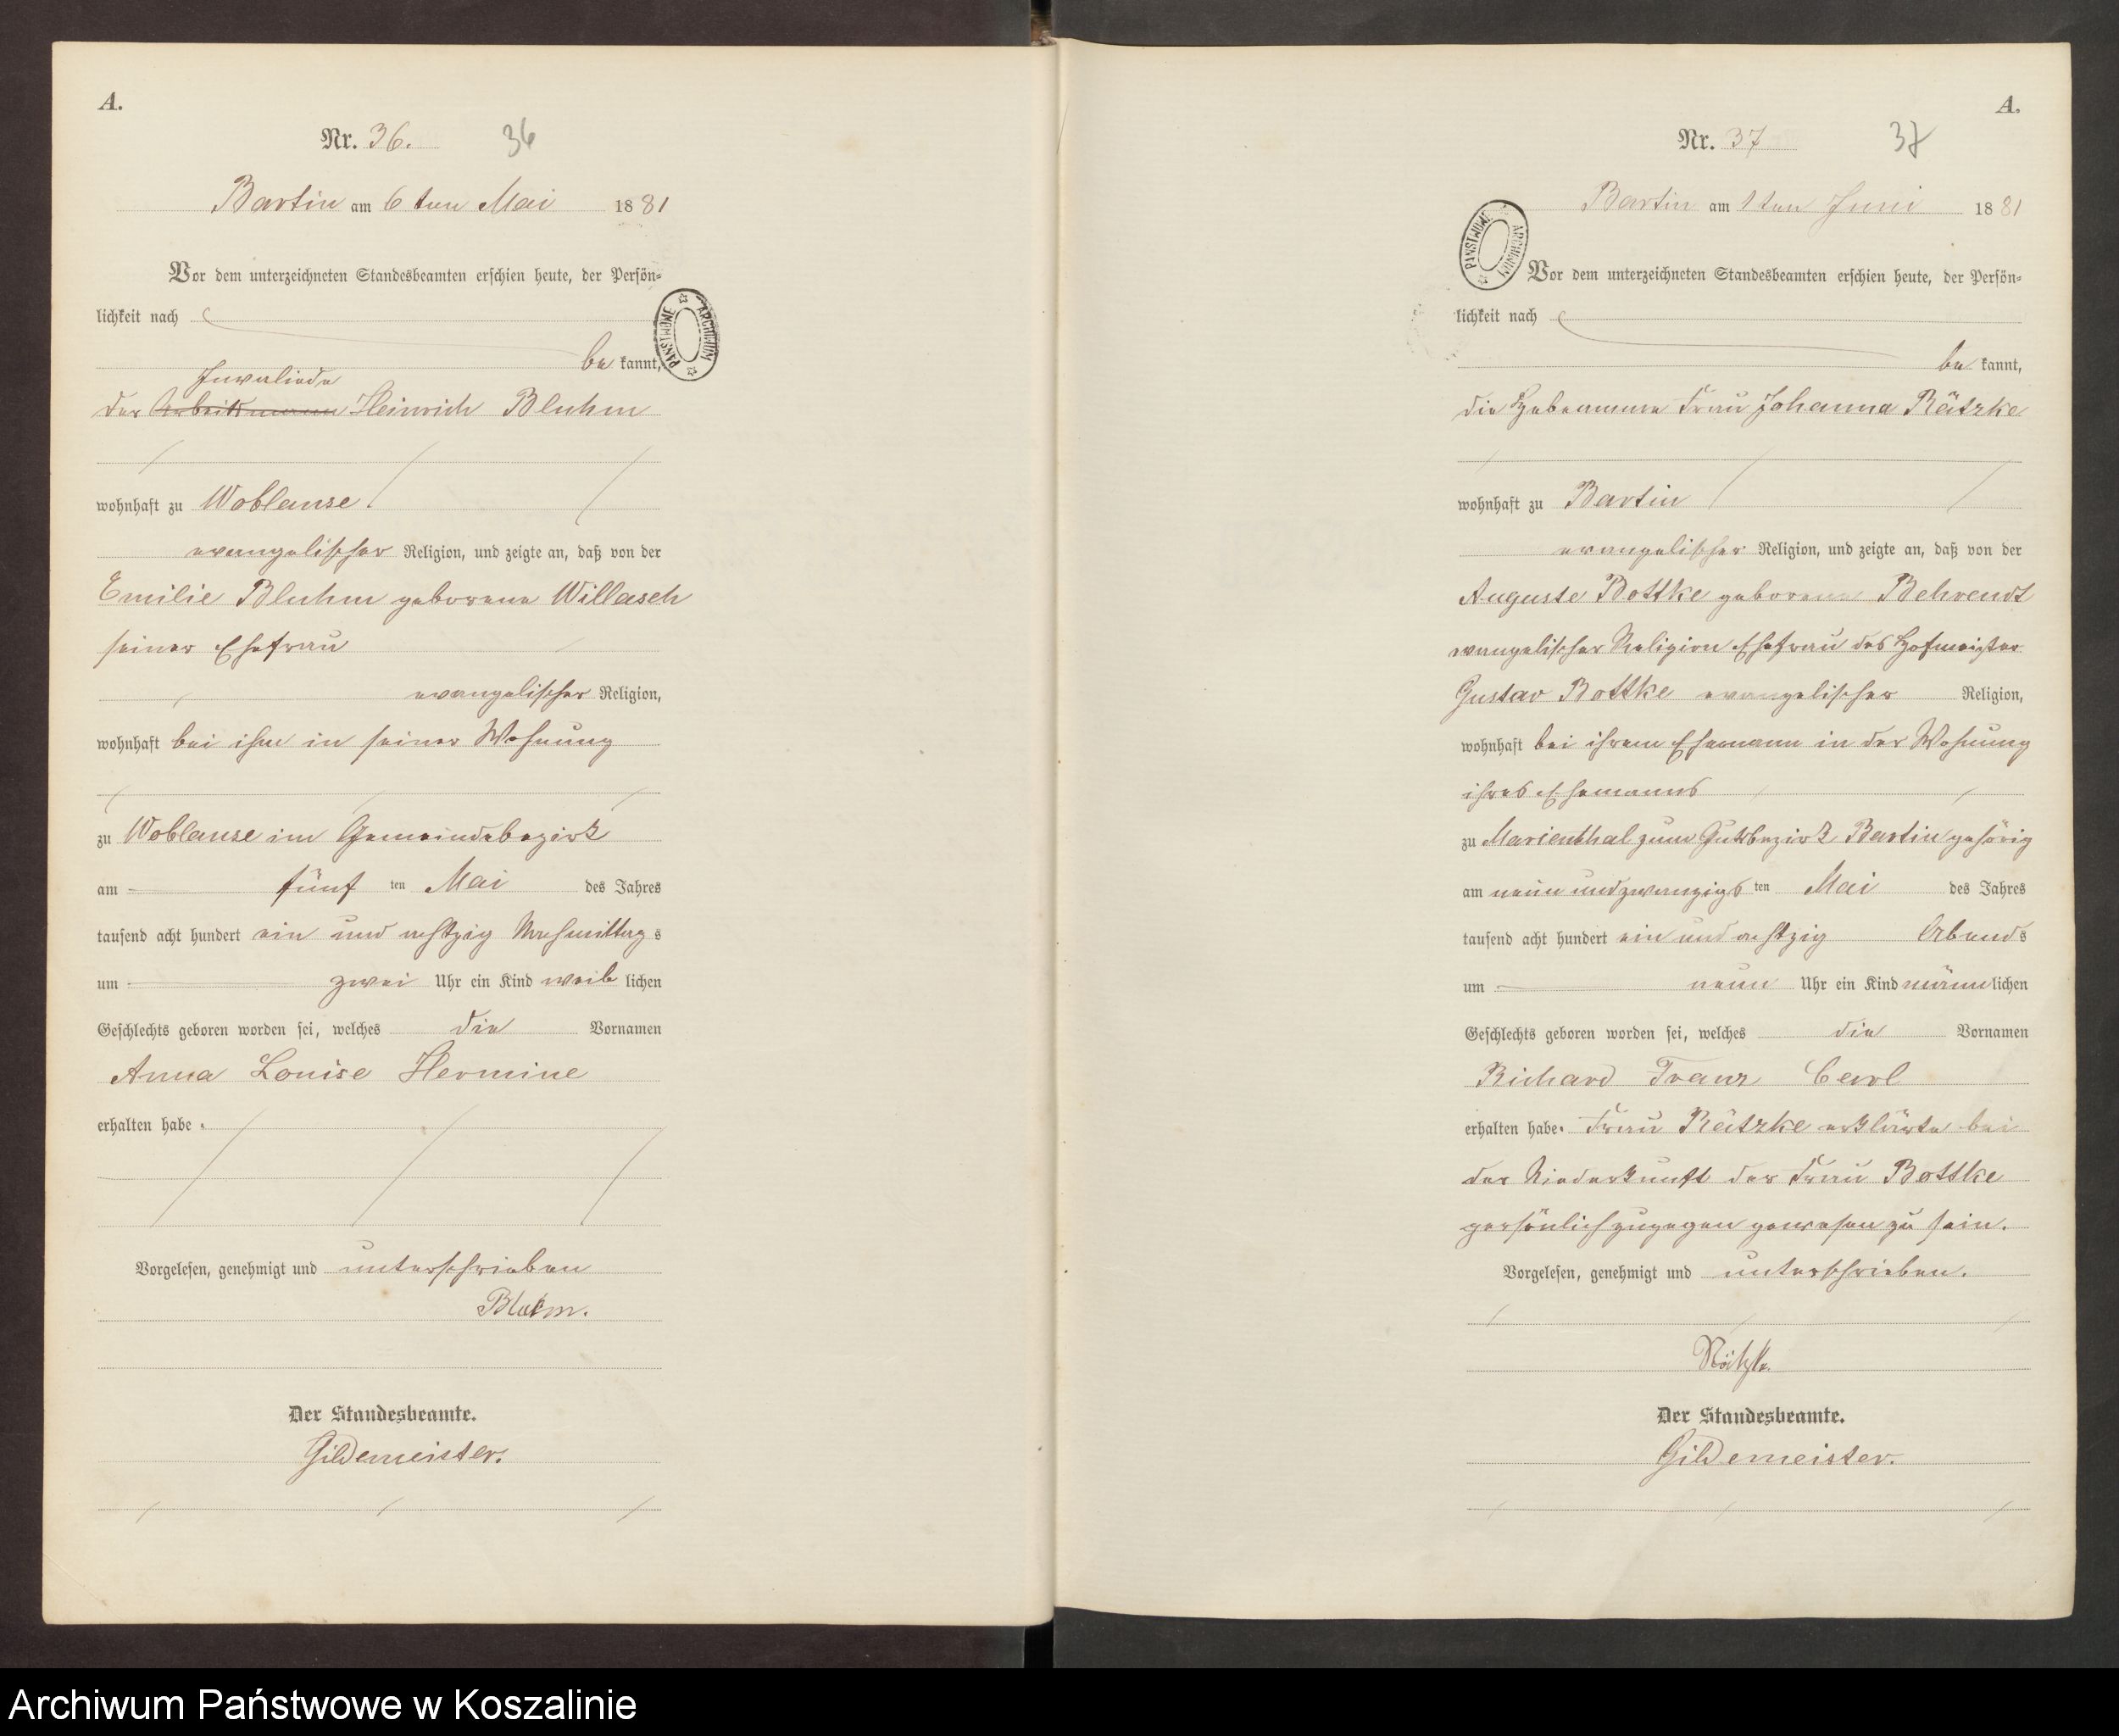 A.
Nr. 36. 36
Bartin am 6 ten Mai 1881
Vor dem unterzeichneten Standesbeamten erschien heute, der Persön-
lichkeit nach
be kannt,
Invaliede
der Arbeitsmann Heinrich Bluhm
wohnhaft zu Woblanse
evangelischer Religion, und zeigte an, daß von der
Emilie Bluhm geborene Willasch
seiner Ehefrau
evangelischer Religion,
wohnhaft bei ihm in seiner Wohnung
zu Woblanse im Gemeindebezirk
am fünf ten Mai des Jahres
tausend acht hundert ein und achtzig Nachmittag s
um zwei Uhr ein Kind weib lichen
Geschlechts geboren worden sei, welches die Vornamen
Anna Louise Hermine
erhalten habe.
Vorgelesen, genehmigt und unterschrieben
Bluhm.
Der Standesbeamte.
Gildemeister.
A.
Nr. 37 37
Bartin am 1 ten Juni 1881
Vor dem unterzeichneten Standesbeamten erschien heute, der Persön-
lichkeit nach
be kannt,
die Hebeamme Frau Johanna Rätzke
wohnhaft zu Bartin
evangelischer Religion, und zeigte an, daß von der
Auguste Bottke geborene Behrendt
evangelischer Religion Ehefrau des Hofmeister
Gustav Bottke evangelischer Religion,
wohnhaft bei ihrem Ehemann in der Wohnung
ihres Ehemanns
zu Marienthal zum Gutsbezirk Bartin gehörig
am neun und zwanzigs ten Mai des Jahres
tausend acht hundert ein und achtzig Abends
um neun Uhr ein Kind männlichen
Geschlechts geboren worden sei, welches die Vornamen
Richard Franz Carl
erhalten habe. Frau Rätzke erklärte bei
der Niederkunft der Frau Bottke
persönlich zugegen gewesen zu sein.
Vorgelesen, genehmigt und unterschrieben.
Rätzke
Der Standesbeamte.
Gildemeister.
ARCHIWUM PAŃSTWOWE
ARCHIWUM PAŃSTWOWE
Archiwum Państwowe w Koszalinie